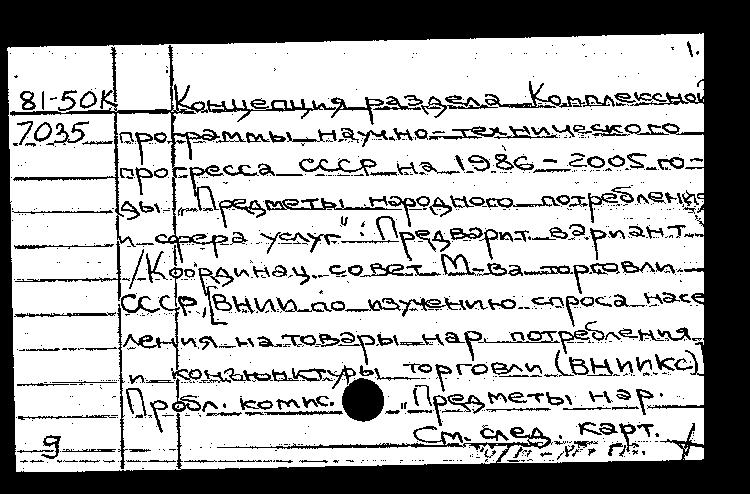 1.
81-50К Концепция раздела Комплексной
7035 программы научно-технического
прогресса СССР на 1986-2005 го-
ды „Предметы народного потребления
и сфера услуг": Предварит. вариант
/Координац. совет М-ва торговли
СССР, [ВНИИ по изучению спроса насе
ления на товары нар. потребления
и конъюнктуры торговли (ВНИИКС)]
Пробл. комис. „Предметы нар.
См. след. карт.
9